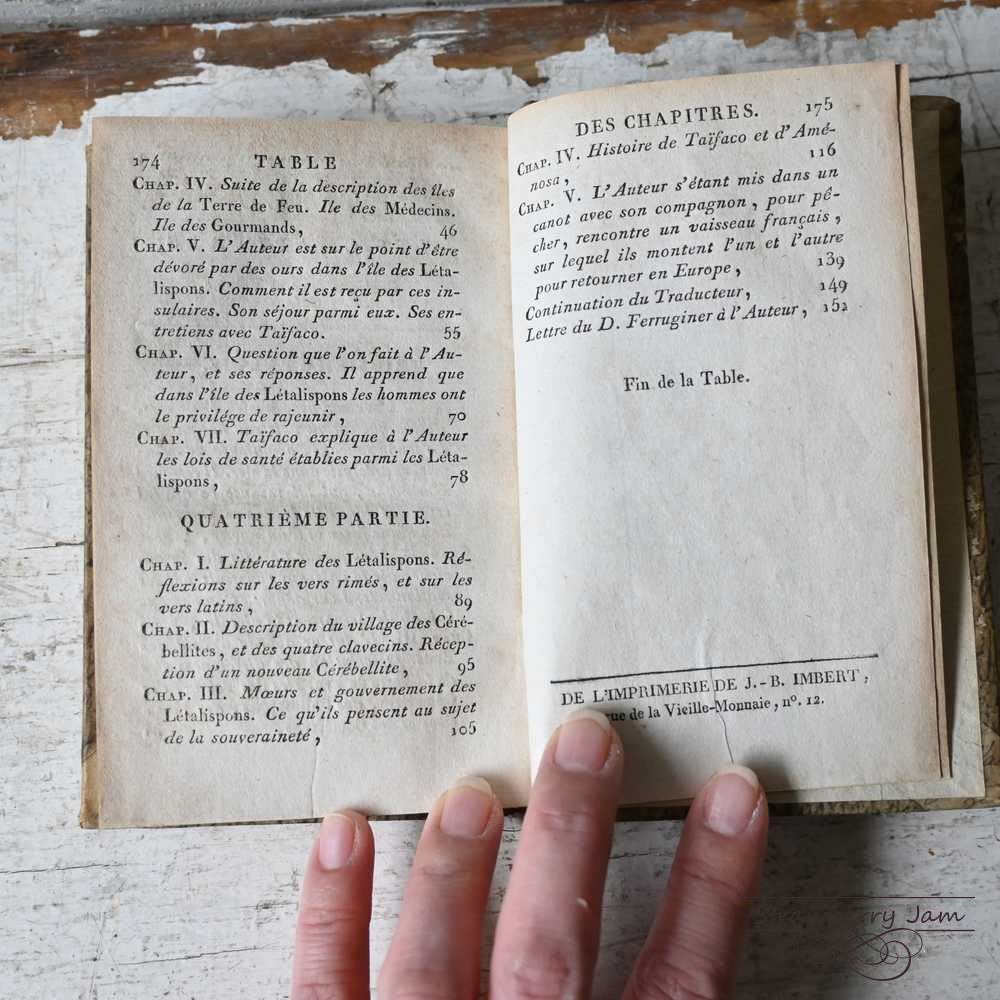 174 TABLE
CHAP. IV. Suite de la description des îles
de la Terre de Feu. Ile des Médecins.
Ile des Gourmands, 46
CHAP. V. L'Auteur est sur le point d'être
dévoré par des ours dans l'île des Léta-
lispons. Comment il est reçu par ces in-
sulaires. Son séjour parmi eux. Ses en-
tretiens avec Taïfaco. 55
CHAP. VI. Question que l'on fait à l'Au-
teur, et ses réponses. Il apprend que
dans l'île des Létalispons les hommes ont
le privilége de rajeunir, 70
CHAP. VII. Taïfaco explique à l'Auteur
les lois de santé établies parmi les Léta-
lispons, 78
QUATRIÈME PARTIE.
CHAP. I. Littérature des Létalispons. Ré-
flexions sur les vers rimés, et sur les
vers latins, 89
CHAP. II. Description du village des Céré-
bellites, et des quatre clavecins. Récep-
tion d'un nouveau Cérébellite, 95
CHAP. III. Mœurs et gouvernement des
Létalispons. Ce qu'ils pensent au sujet
de la souveraineté, 105
DES CHAPITRES. 175
CHAP. IV. Histoire de Taïfaco et d'Amé-
nosa, 116
CHAP. V. L'Auteur s'étant mis dans un
canot avec son compagnon, pour pê-
cher, rencontre un vaisseau français,
sur lequel ils montent l'un et l'autre
pour retourner en Europe, 139
Continuation du Traducteur, 149
Lettre du D. Ferruginer à l'Auteur, 152
Fin de la Table.
DE L'IMPRIMERIE DE J.-B. IMBERT,
rue de la Vieille-Monnaie, nº. 12.
Jam